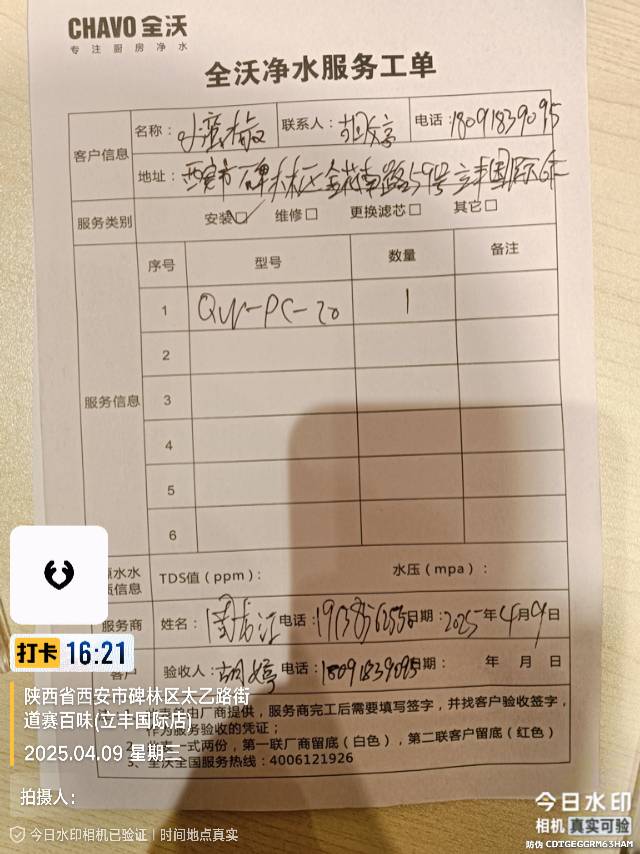 CHAVO 全沃
专注厨房净水
全沃净水服务工单
客户信息
名称: 小蛮椒 联系人: 胡婷 电话: 18091839095
地址: 西安市碑林区金花南路59号立丰国际6F
服务类别 安装☑ 维修□ 更换滤芯□ 其它□
服务信息
序号 型号 数量 备注
1 QW-PC-20 1
2
3
4
5
6
水水 TDS值(ppm): 水压(mpa):
信息
服务商 姓名: 电话: 日期: 2025年4月9日
客户 验收人: 胡婷 电话: 18091839095 日期: 年 月 日
由厂商提供,服务商完工后需要填写签字,并找客户验收签字,
作为服务验收的凭证;
一式两份,第一联厂商留底(白色),第二联客户留底(红色)
3、全沃全国服务热线:4006121926
打卡 16:21
陕西省西安市碑林区太乙路街
道赛百味(立丰国际店)
2025.04.09 星期三
拍摄人:
今日水印相机已验证 | 时间地点真实
今日水印
相机 真实可验
防伪 CDTGEGGRM63HAM